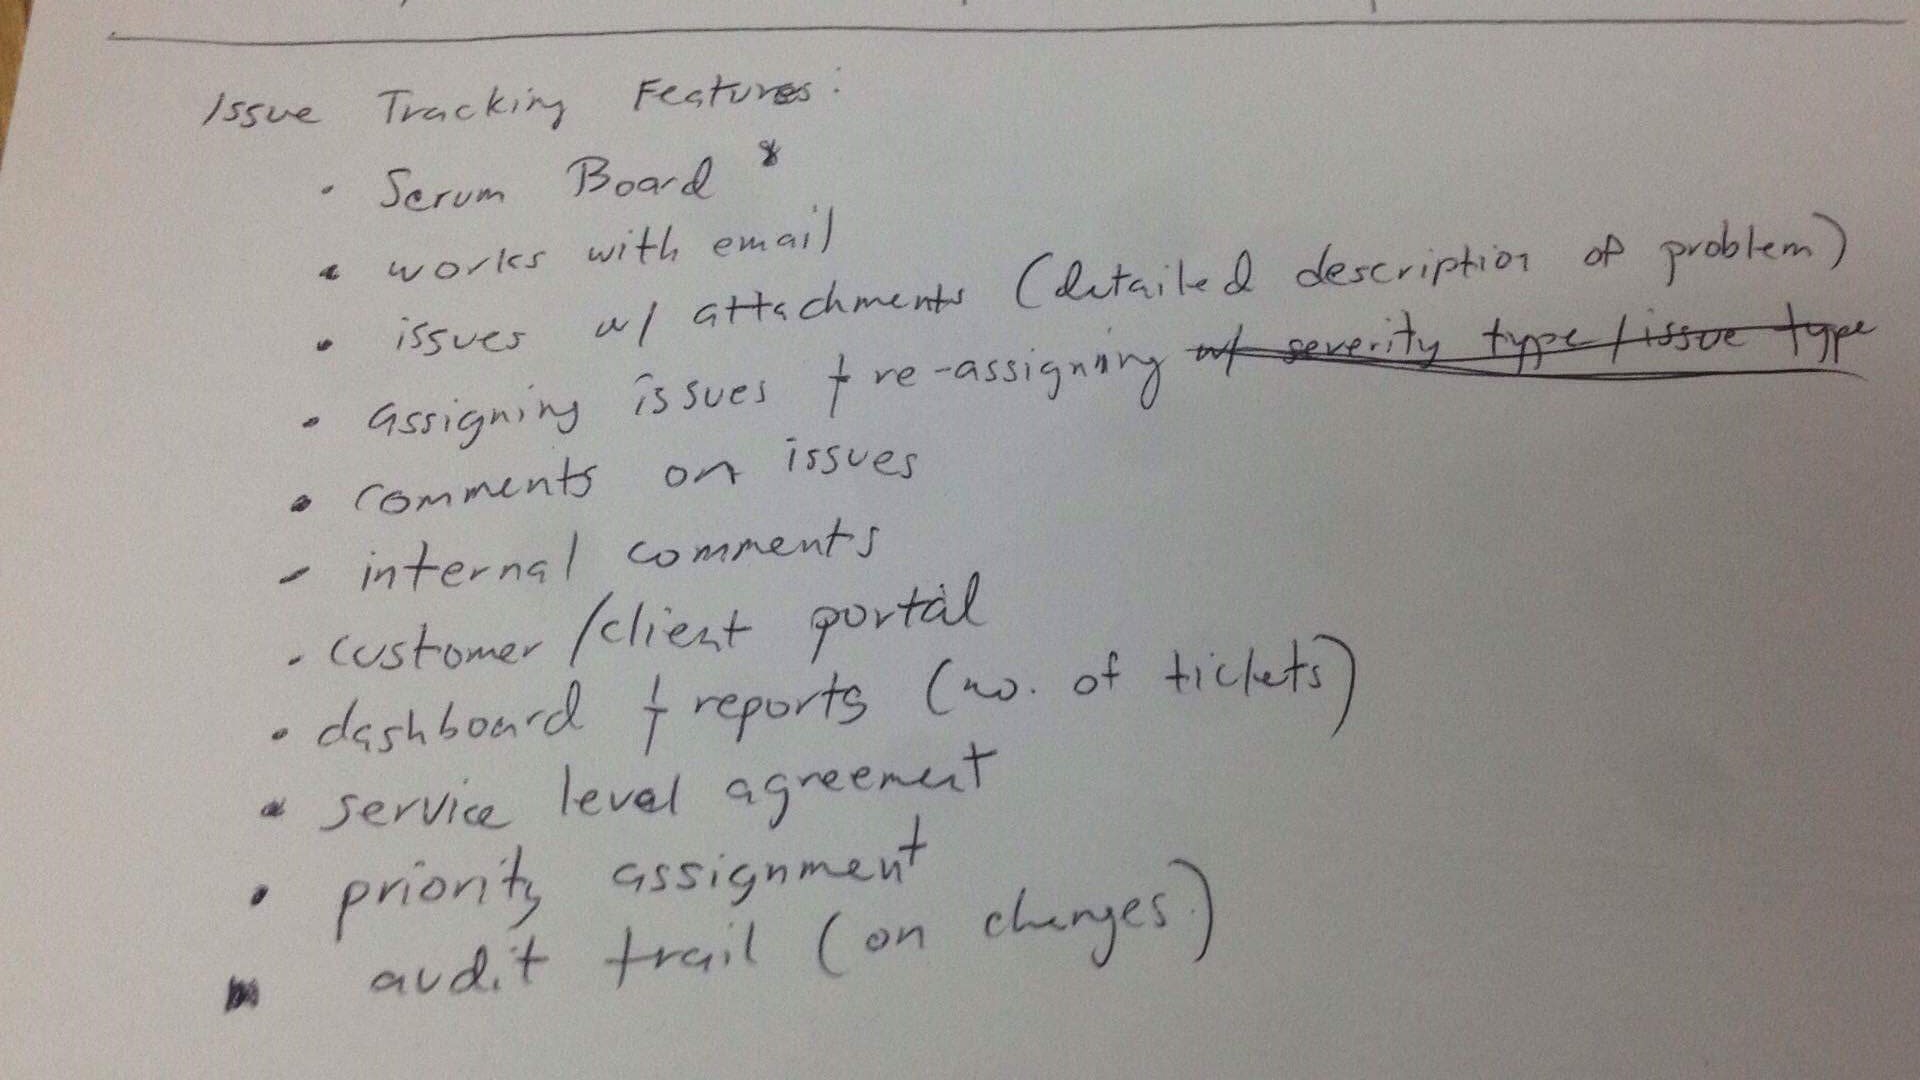 Issue Tracking Features:
· Scrum Board *
· works with email
· issues w/ attachments (detailed description of problem)
· assigning issues + re-assigning ~~w/ severity type / issue type~~
· comments on issues
- internal comments
· customer/client portal
· dashboard + reports (no. of tickets)
· service level agreement
· priority assignment
· audit trail (on changes)